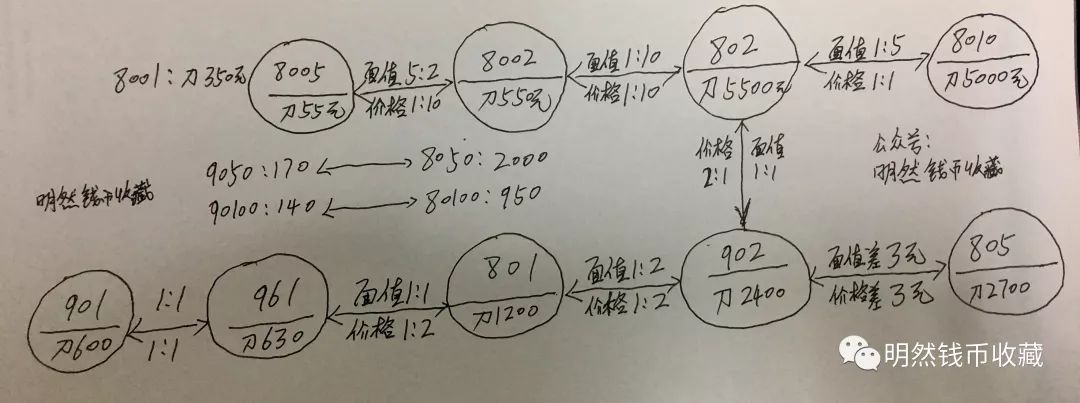 8001:刀350元
8005
刀55元
面值5:2
价格1:10
8002
刀550元
面值1:10
价格1:10
802
刀5500元
面值1:5
价格1:1
8010
刀5000元
9050:170
8050:2000
90100:140
80100:950
明然钱币收藏
价格
2:1
面值
1:1
公众号:
明然钱币收藏
901
刀600
1:1
1:1
961
刀630
面值1:1
价格1:2
801
刀1200
面值1:2
价格1:2
902
刀2400
面值差3元
价格差3元
805
刀2700
明然钱币收藏